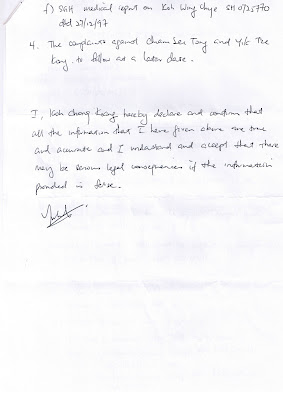 f) SGH medical report on Koh Wing Chye SH 0/25770
dtd 27/12/97
4. The complaints against Cham Sen Tong and Yik Tze
Kong, to follow at a later date.
I, Koh Chong Kiang hereby declare and confirm that
all the information that I have given above are true
and accurate and I understand and accept that there
may be serious legal consequences if the information
provided is false.